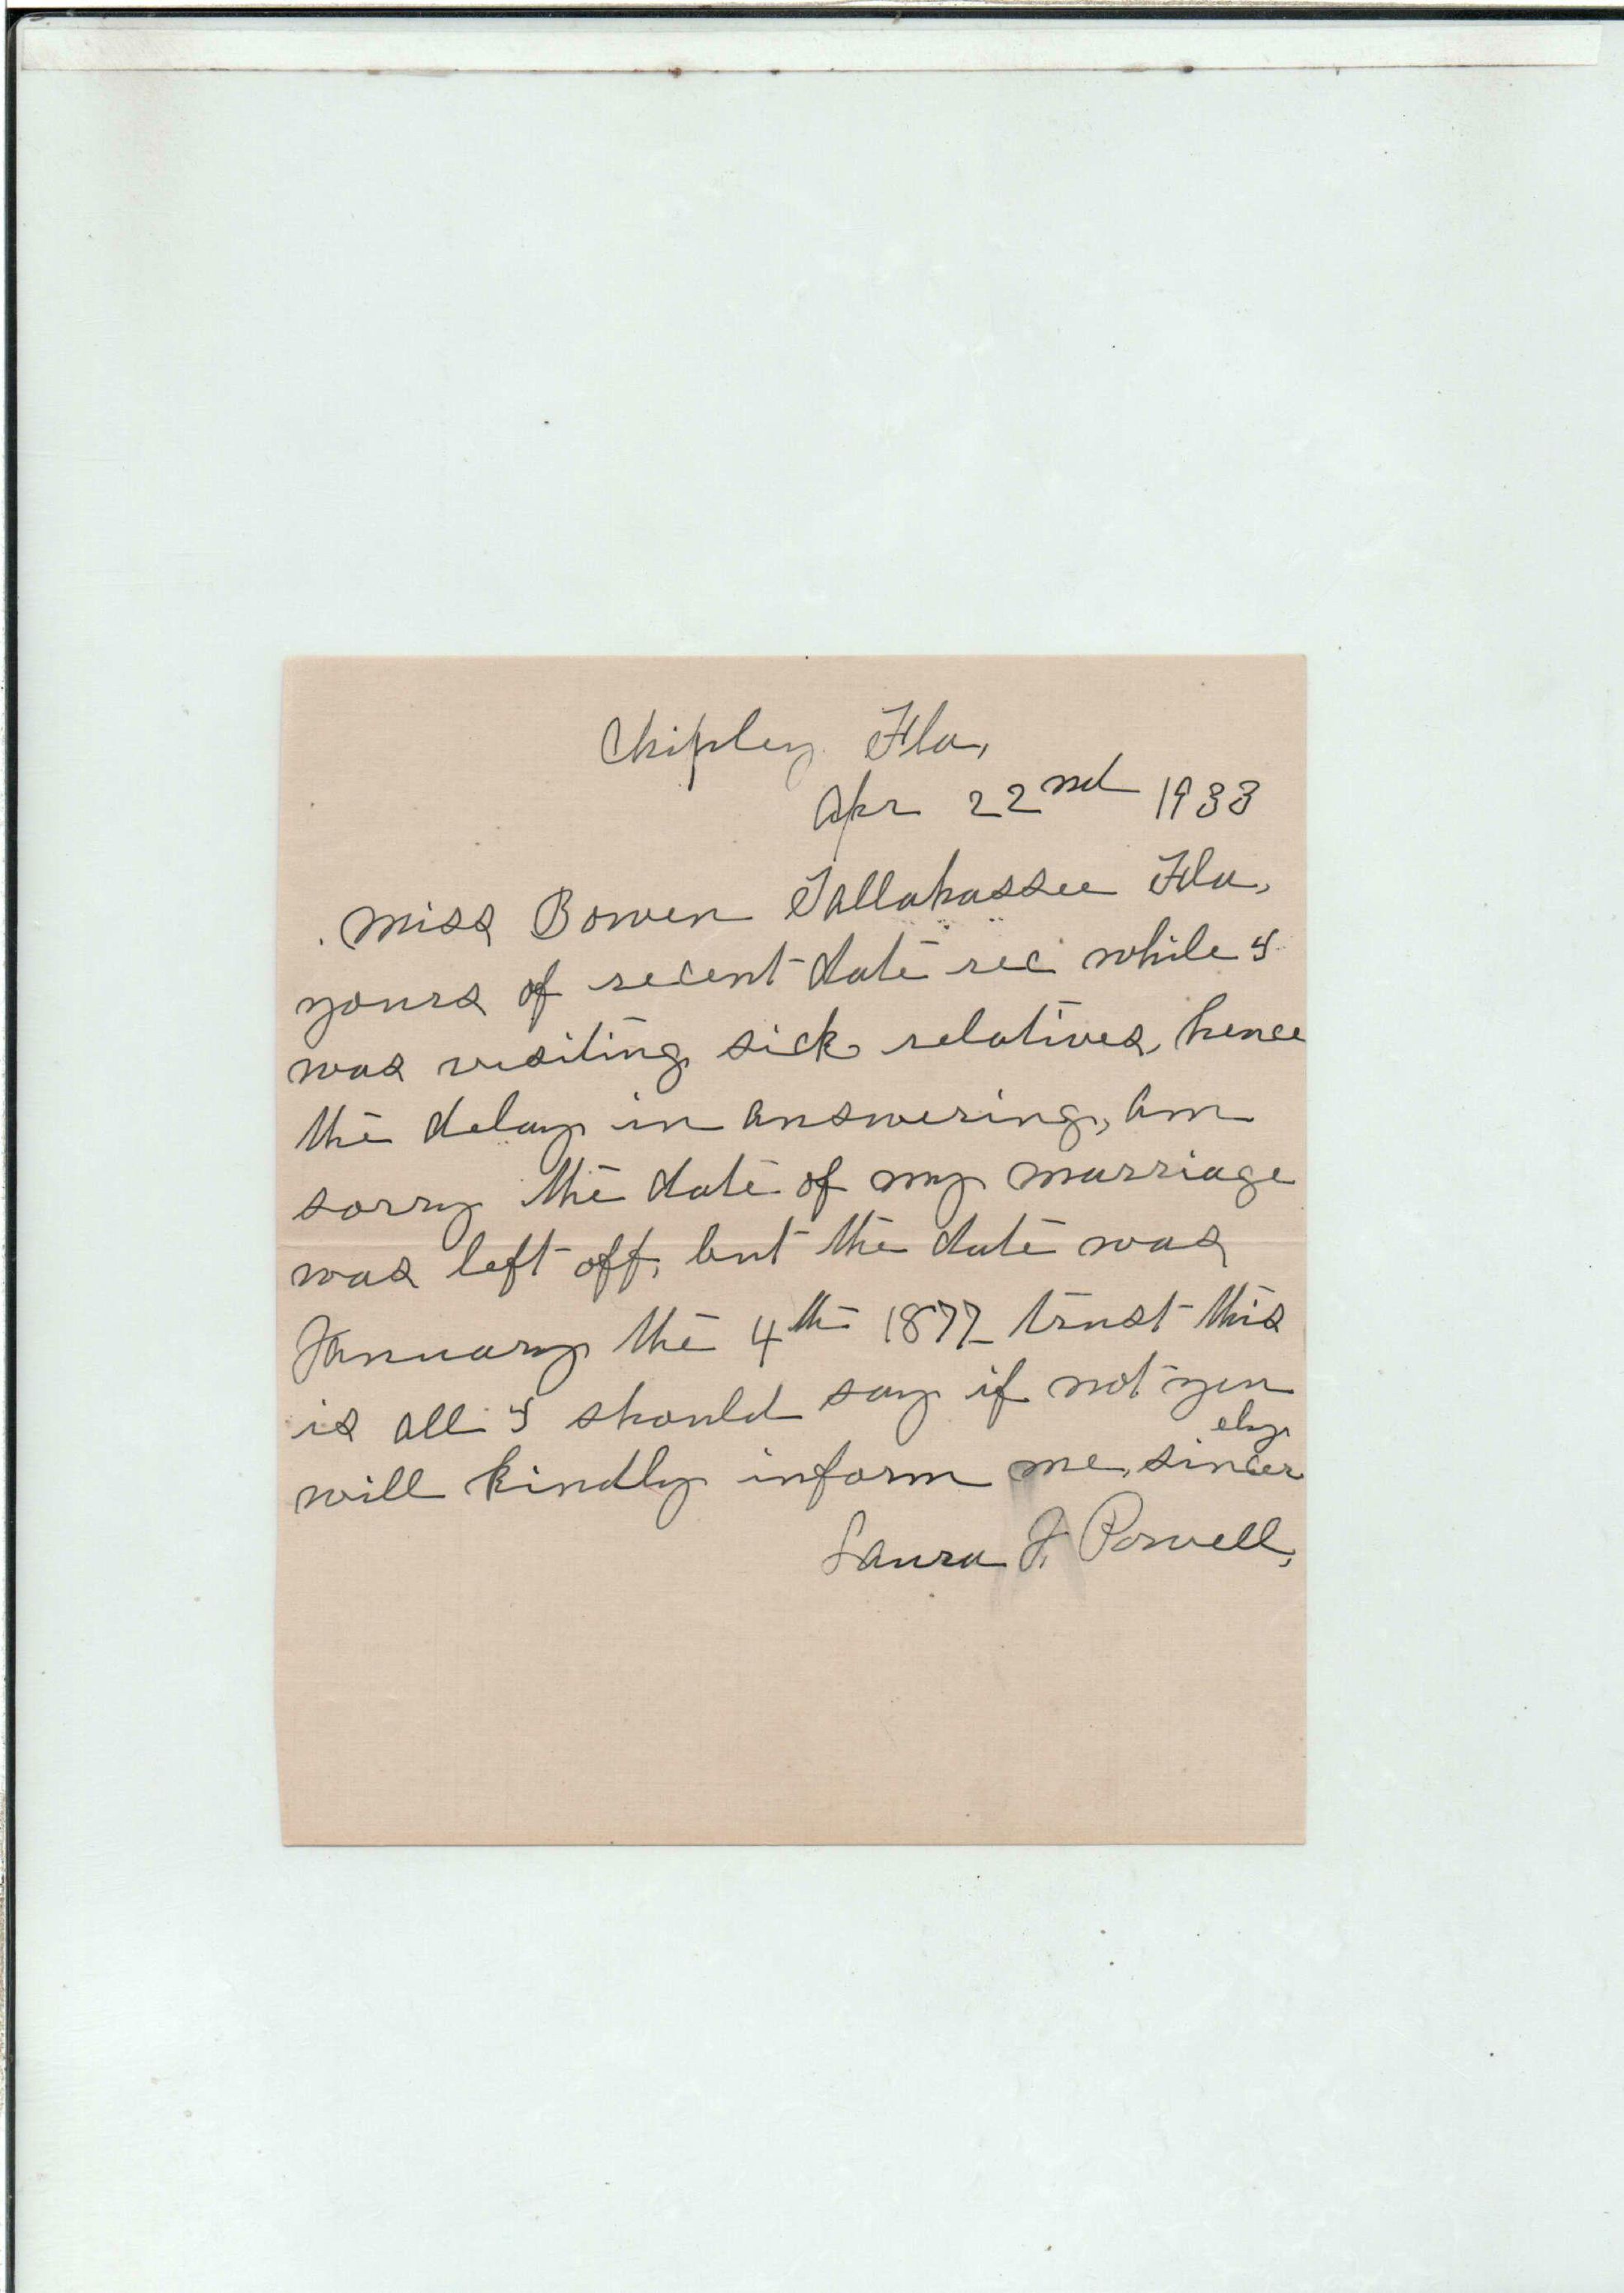 Chipley Fla,
Apr 22nd 1933
Miss Bowen Tallahassee Fla,
yours of recent date rec while I
was visiting sick relatives, hence
the delay in answering, am
sorry the date of my marriage
was left off, but the date was
January the 4th 1877 trust this
is all I should say if not you
will kindly inform me, sincerely
Laura J. Powell,